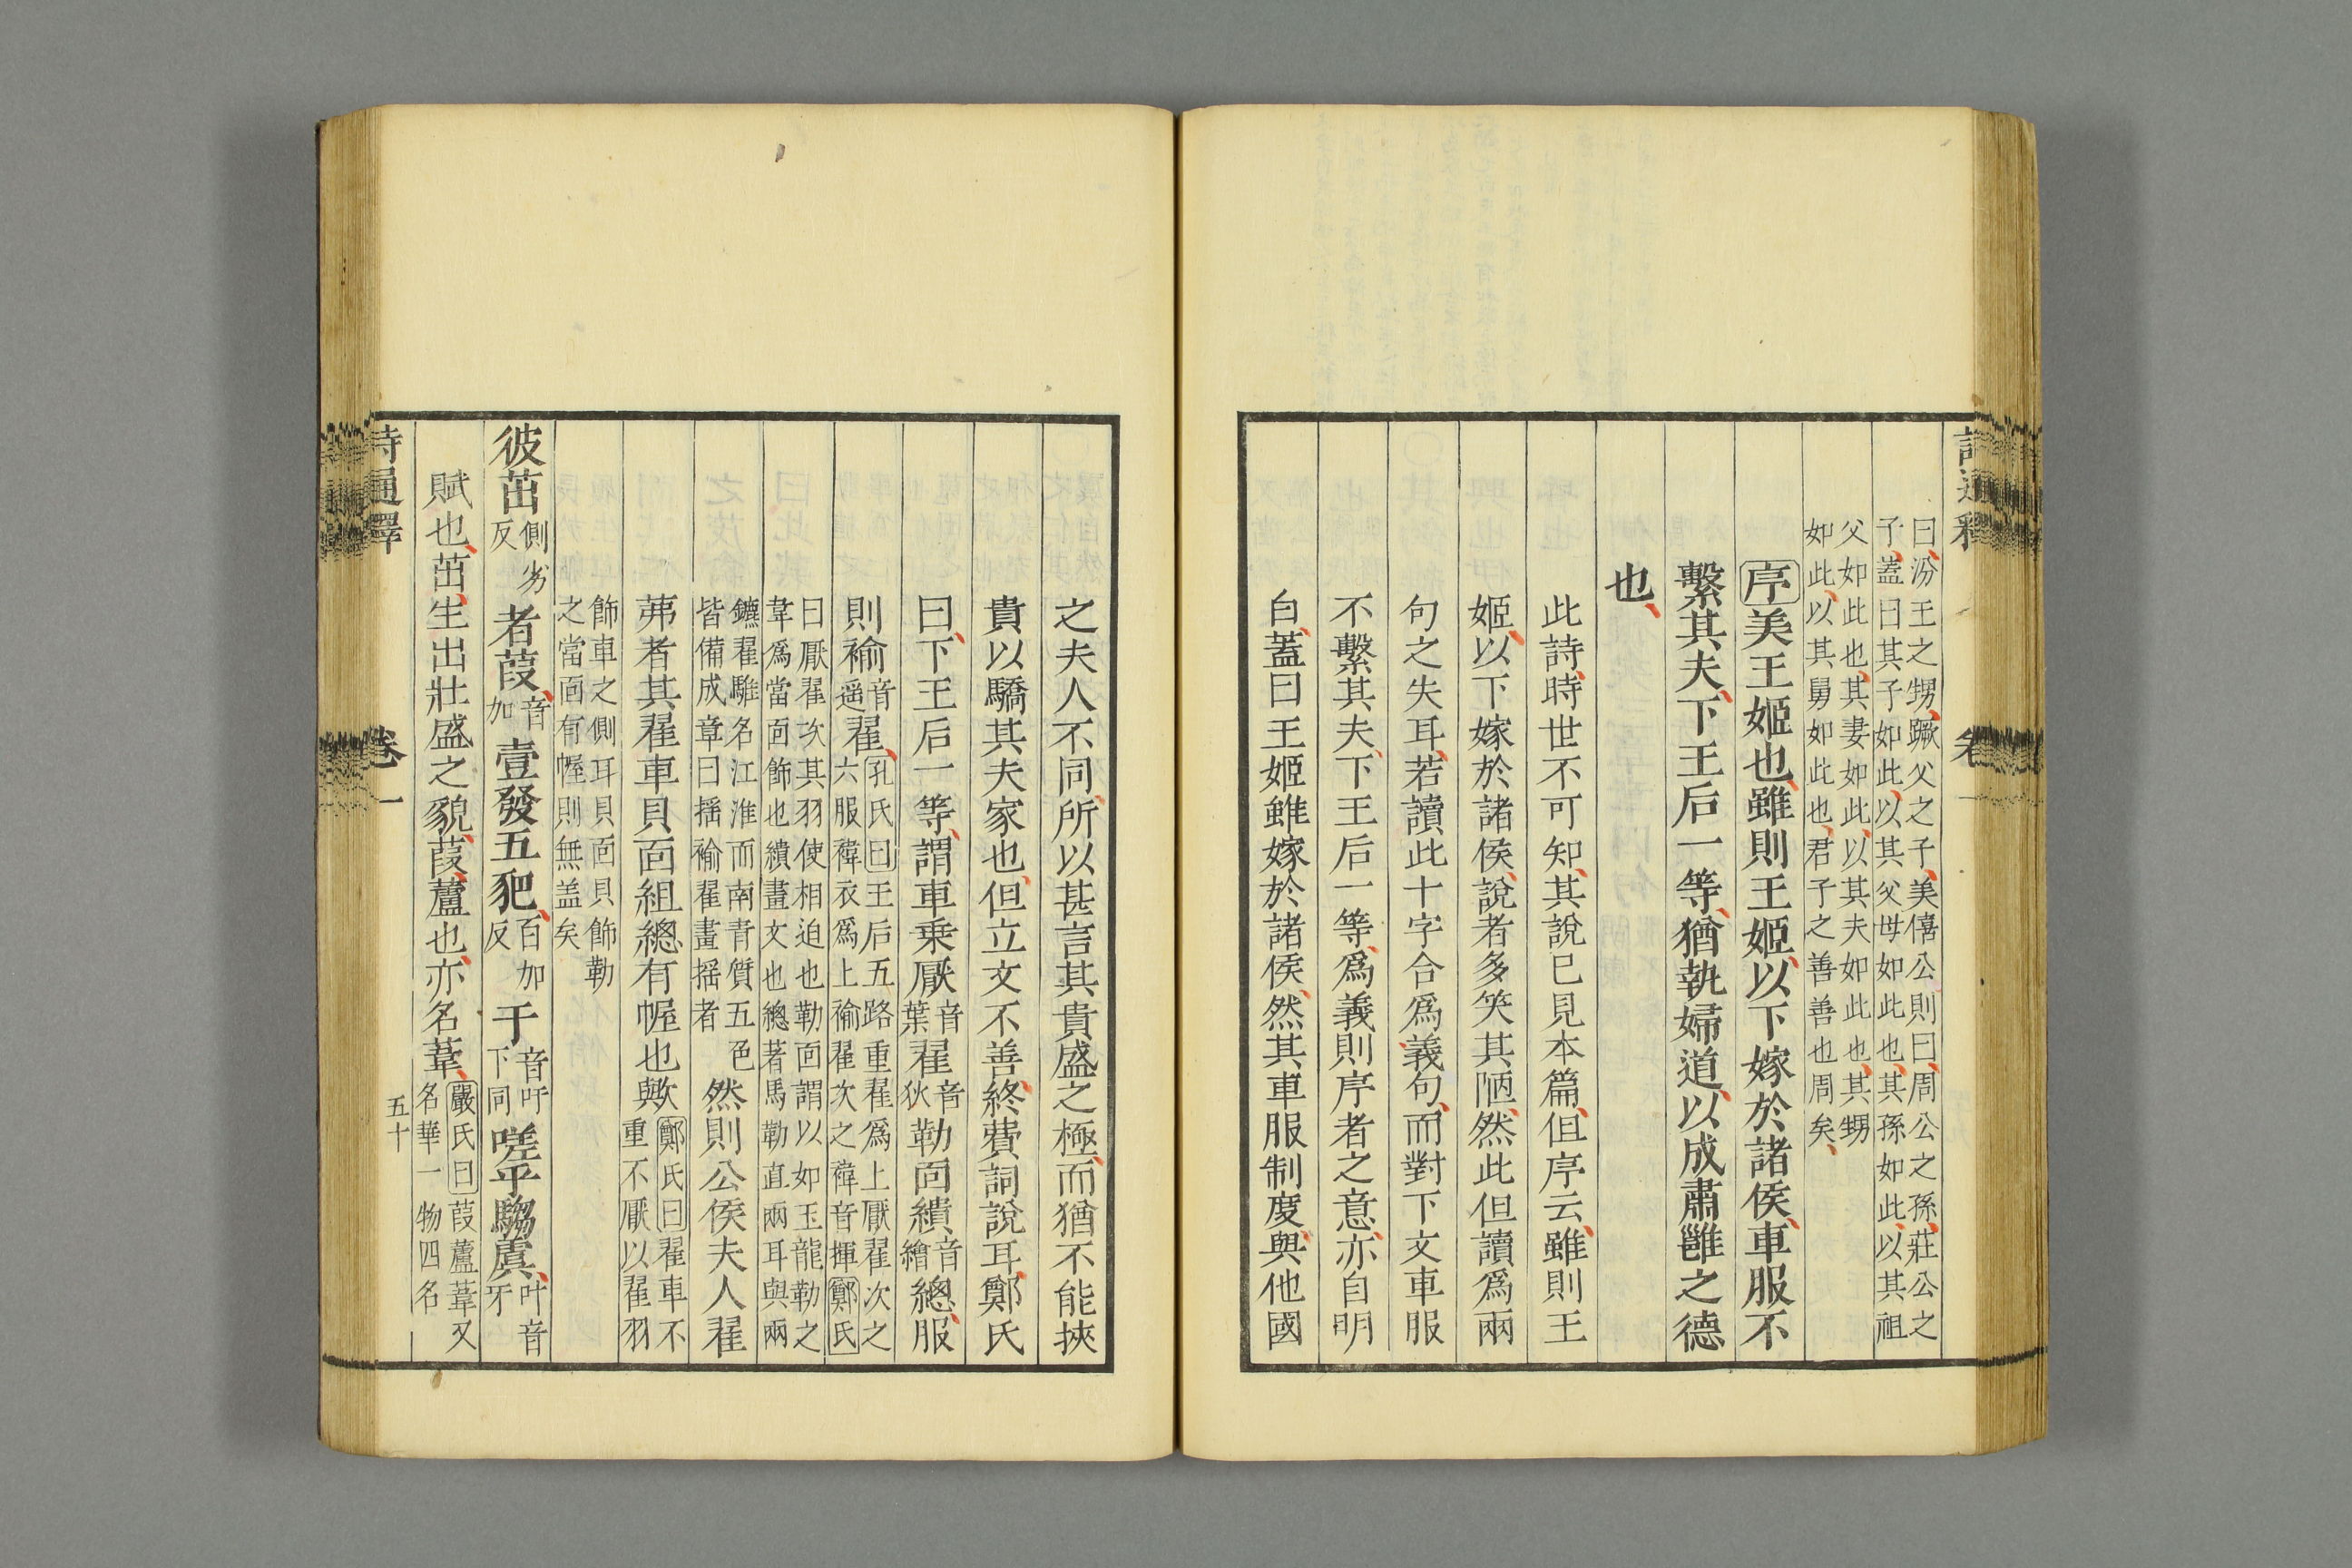 曰汾王之甥蹶父之子美僖公則曰周公之孫莊公之
子蓋曰其子如此以其父母如此也其孫如此以其祖
父如此也其妻如此以其夫如此也其甥
如此以其舅如此也君子之善善也周矣
序美王姬也雖則王姬以下嫁於諸侯車服不
繫其夫下王后一等猶執婦道以成肅雝之德
也
此詩時世不可知其說已見本篇但序云雖則王
姬以下嫁於諸侯說者多笑其陋然此但讀爲兩
句之失耳若讀此十字合爲義句而對下文車服
不繫其夫下王后一等爲義則序者之意亦自明
白蓋曰王姬雖嫁於諸侯然其車服制度與他國
之夫人不同所以甚言其貴盛之極而猶不能挾
貴以驕其夫家也但立文不善終費詞說耳鄭氏
曰下王后一等謂車乗厭音葉翟音狄勒靣繢音繪總服
則褕音遥翟孔氏曰王后五路重翟爲上厭翟次之
六服褘衣爲上褕翟次之褘音揮鄭氏
曰厭翟次其羽使相迫也勒靣謂以如玉龍勒之
韋爲當靣飾也繢畫文也總著馬勒直兩耳與兩
鑣翟雉名江淮而南青質五色
皆備成章曰揺褕翟畫揺者
然則公侯夫人翟
茀者其翟車貝靣組總有幄也歟鄭氏曰翟車不
重不厭以翟羽
飾車之側耳貝靣貝飾勒
之當靣有幄則無盖矣
彼茁側劣反者葭音加壹發五豝百加反于音吁下同嗟乎騶虞叶音牙
賦也茁生出壯盛之貌葭蘆也亦名葦嚴氏曰葭蘆葦又
名華一物四名
詩通釋
卷一
五十